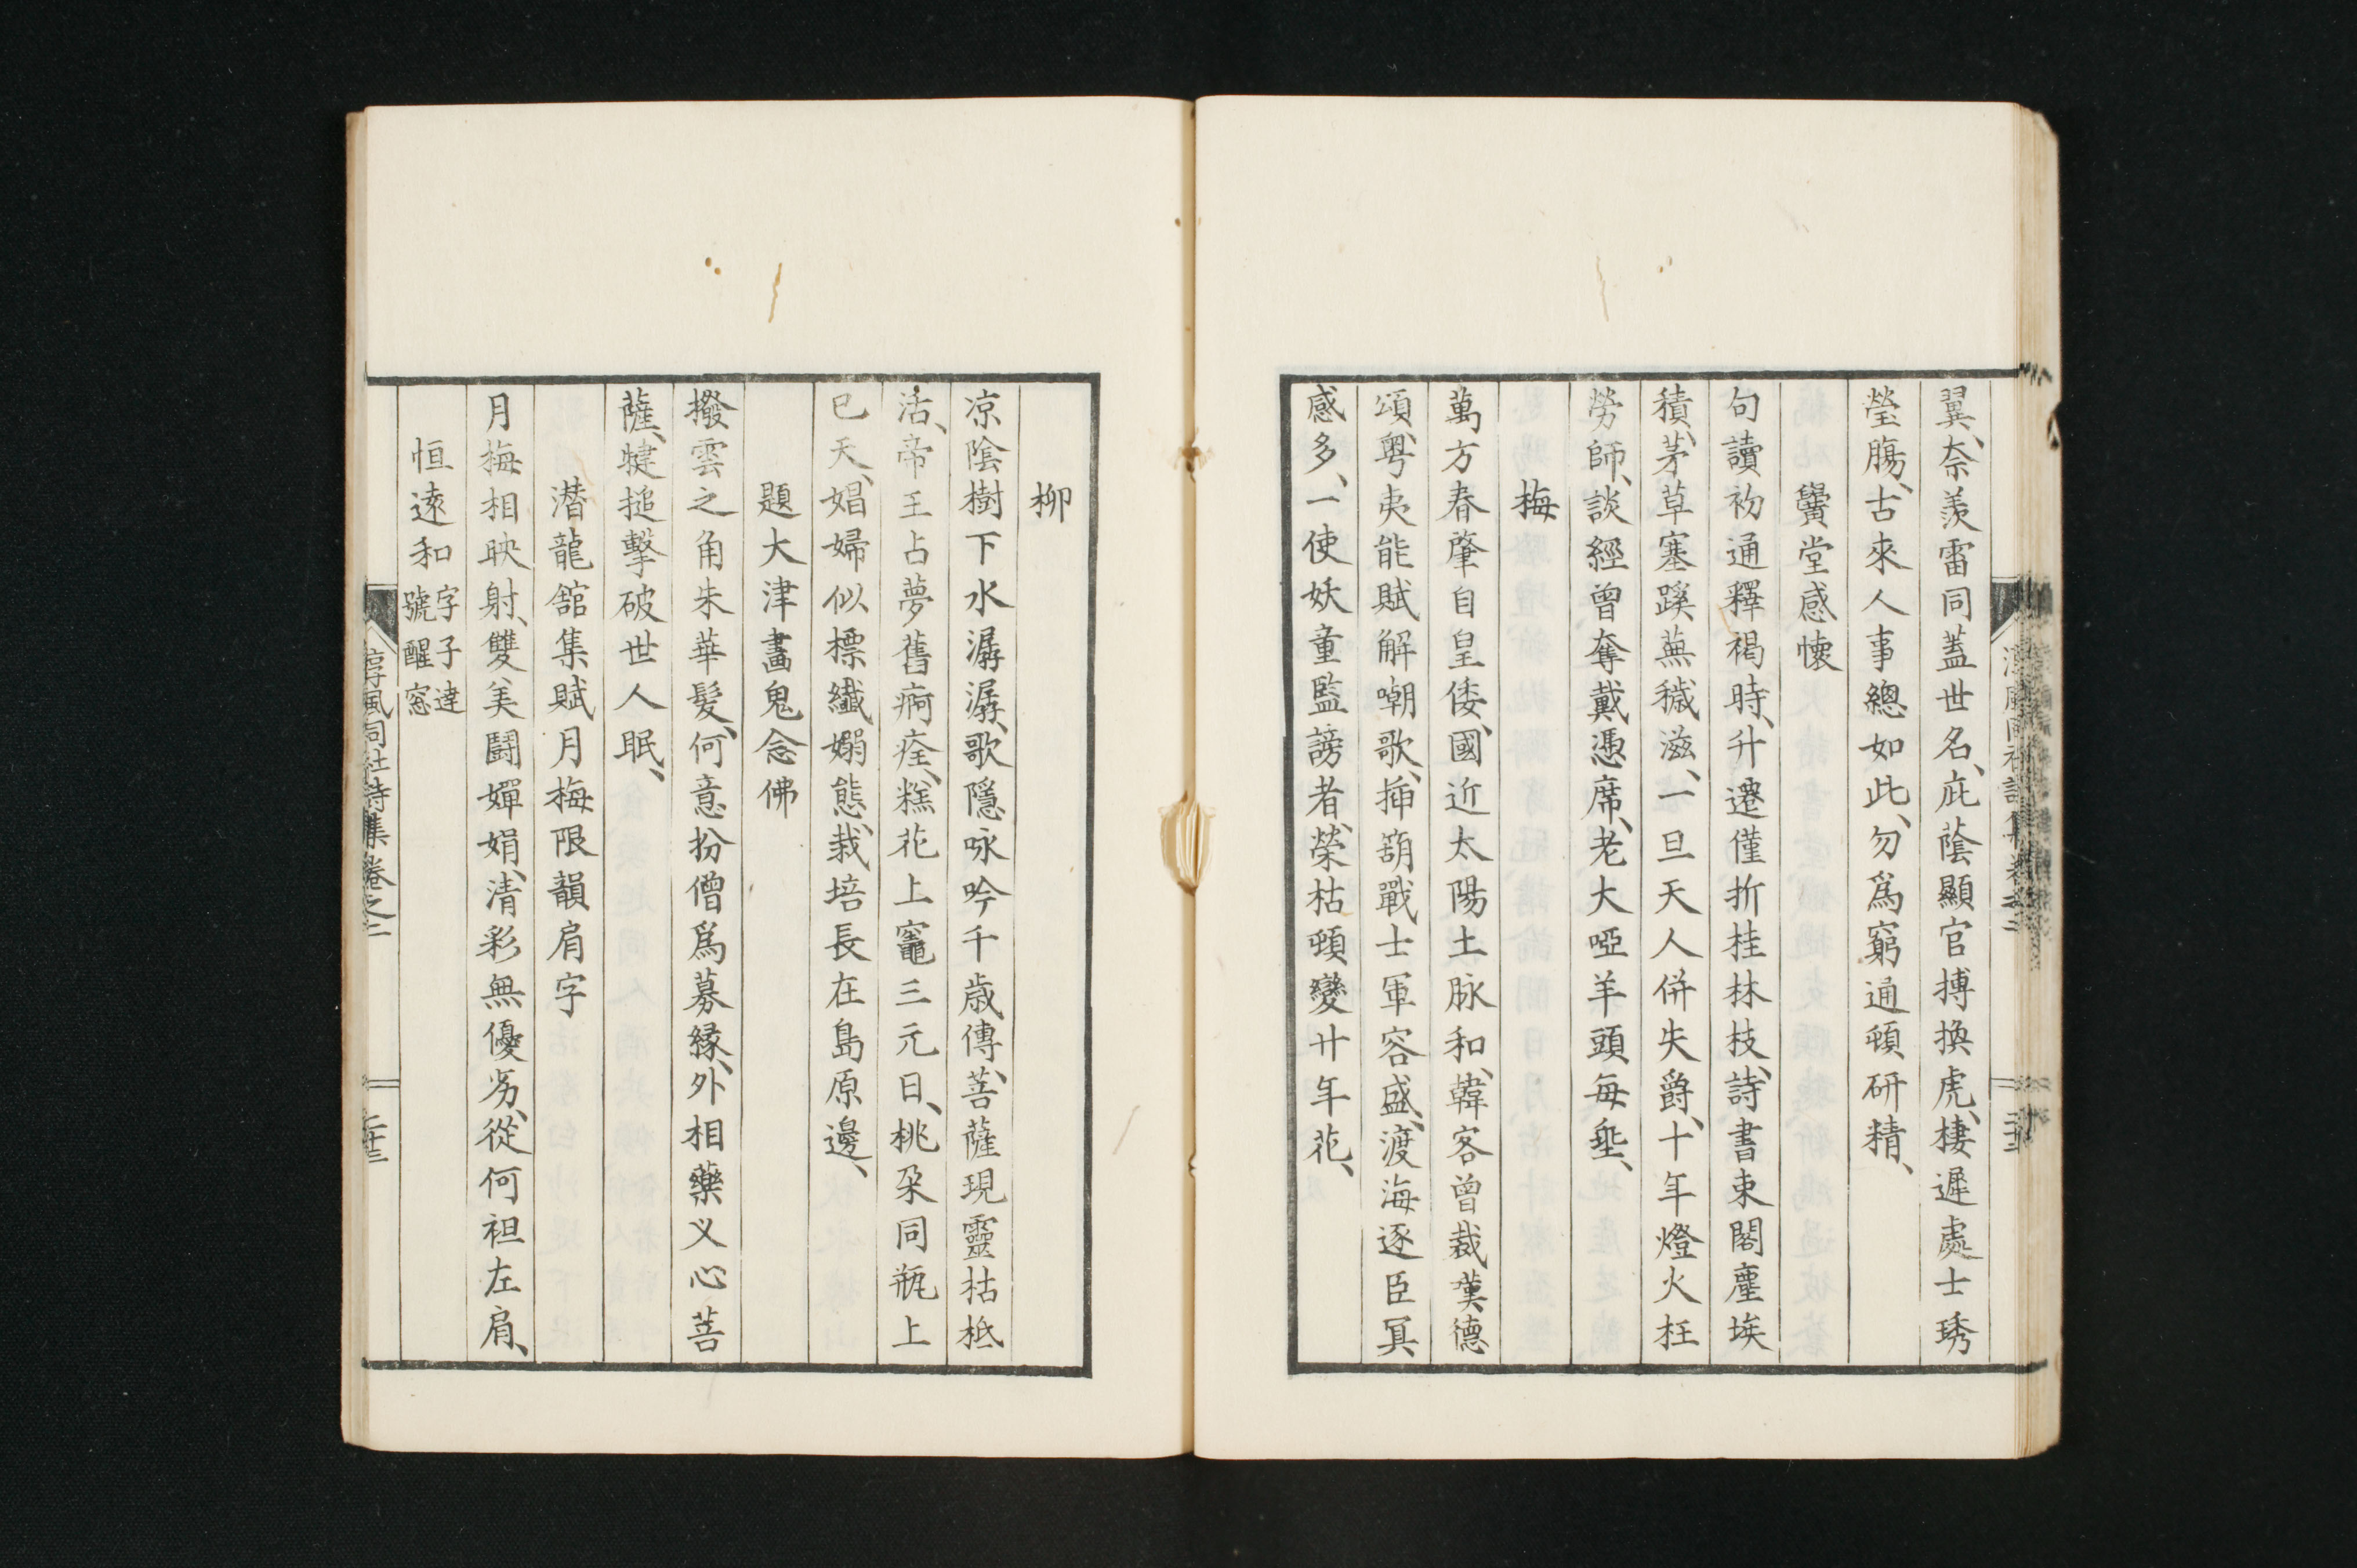 翼、奈羨雷同蓋世名、庇蔭顯官搏換虎、棲遲處士琇
瑩腸、古來人事總如此、勿爲窮通頓研精、
黌堂感懷
句讀初通釋褐時、升遷僅折桂林枝、詩書束閣塵埃
積、茅草塞蹊蕪穢滋、一旦天人併失爵、十年燈火枉
勞師、談經曾奪戴憑席、老大啞羊頭每垂、
梅
萬方春肇自皇倭、國近太陽土脉和、韓客曾裁羮德
頌、粤夷能賦解嘲歌、揷箶戰士軍容盛、渡海逐臣冥
感多、一使妖童監謗者、榮枯頓變廾年花、
柳
凉陰樹下水潺潺、歌隱咏吟千歳傳、菩薩現靈枯柢
活、帝王占夢舊痾痊、糕花上竈三元日、桃朶同瓶上
巳天、娼婦似標纖嫋態、栽培長在島原邊、
題大津畵鬼念佛
撥雲之角朱華髮、何意扮僧爲募緣、外相藥义心菩
薩、揵搥擊破世人眠、
潛龍舘集賦月梅限韻肩字
月梅相映射、雙美鬪嬋娟、清彩無優劣、從何袒左肩、
恒遠和 字子達 號醒窓
淳風同社詩集卷之二
二十三